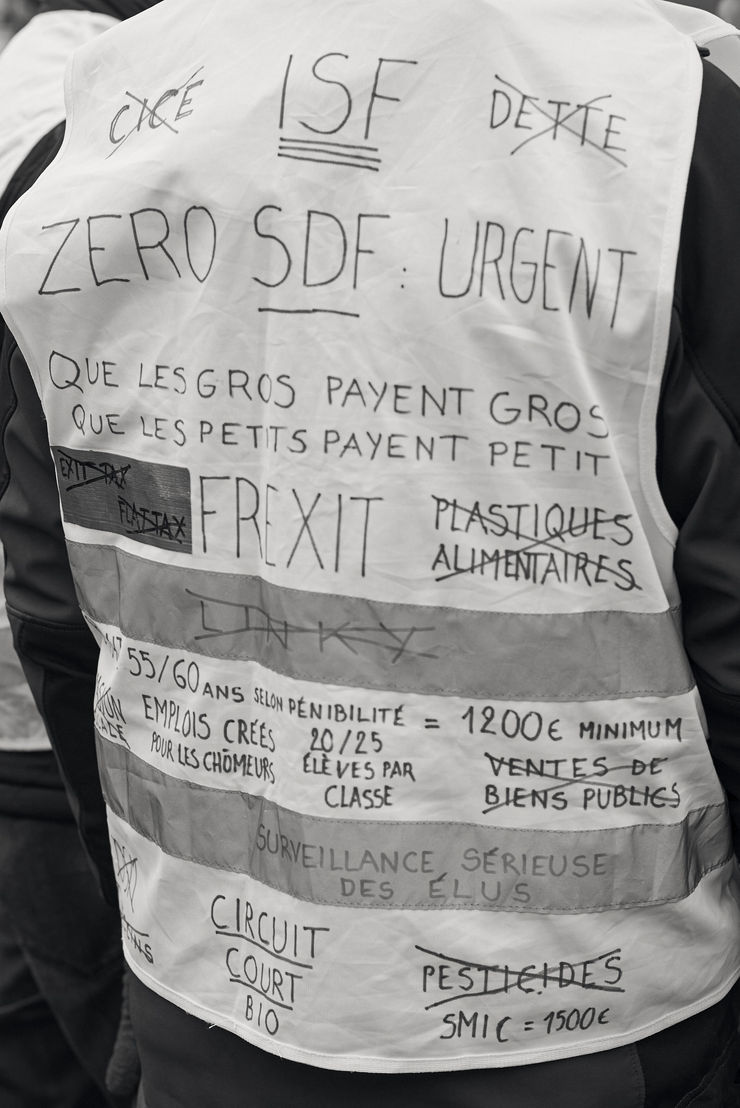 CICE ISF DETTE
ZERO SDF : URGENT
QUE LES GROS PAYENT GROS
QUE LES PETITS PAYENT PETIT
EXIT TAX
FLAT TAX
FREXIT
PLASTIQUES
ALIMENTAIRES
LINKY
55/60 ANS SELON PÉNIBILITÉ = 1200€ MINIMUM
EMPLOIS CRÉÉS
POUR LES CHÔMEURS
20/25
ÉLÈVES PAR
CLASSE
VENTES DE
BIENS PUBLICS
SURVEILLANCE SÉRIEUSE
DES ÉLUS
CIRCUIT
COURT
BIO
PESTICIDES
SMIC = 1500€